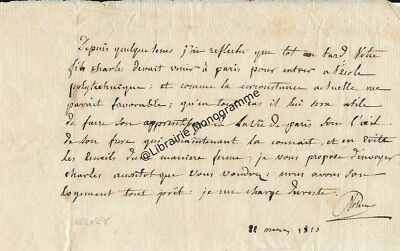 Depuis quelque tems j'ai reflechi que tot ou tard Votre
fils charles devait venir à paris pour entrer a l'école
polytechnique: et comme la circonstance actuelle me
parait favorable; qu'en tout cas il lui sera utile
de faire son apprentissage de la vie de paris sous l'œil
de son frere qui maintenant la connait et en évite
les écueils de maniere ferme; je vous propose d'envoyer
charles aussitot que vous voudrez: nous avons son
logement tout prêt: je me charge du reste.
22 mars 1815
©Librairie_Monogramme
VOLNEY